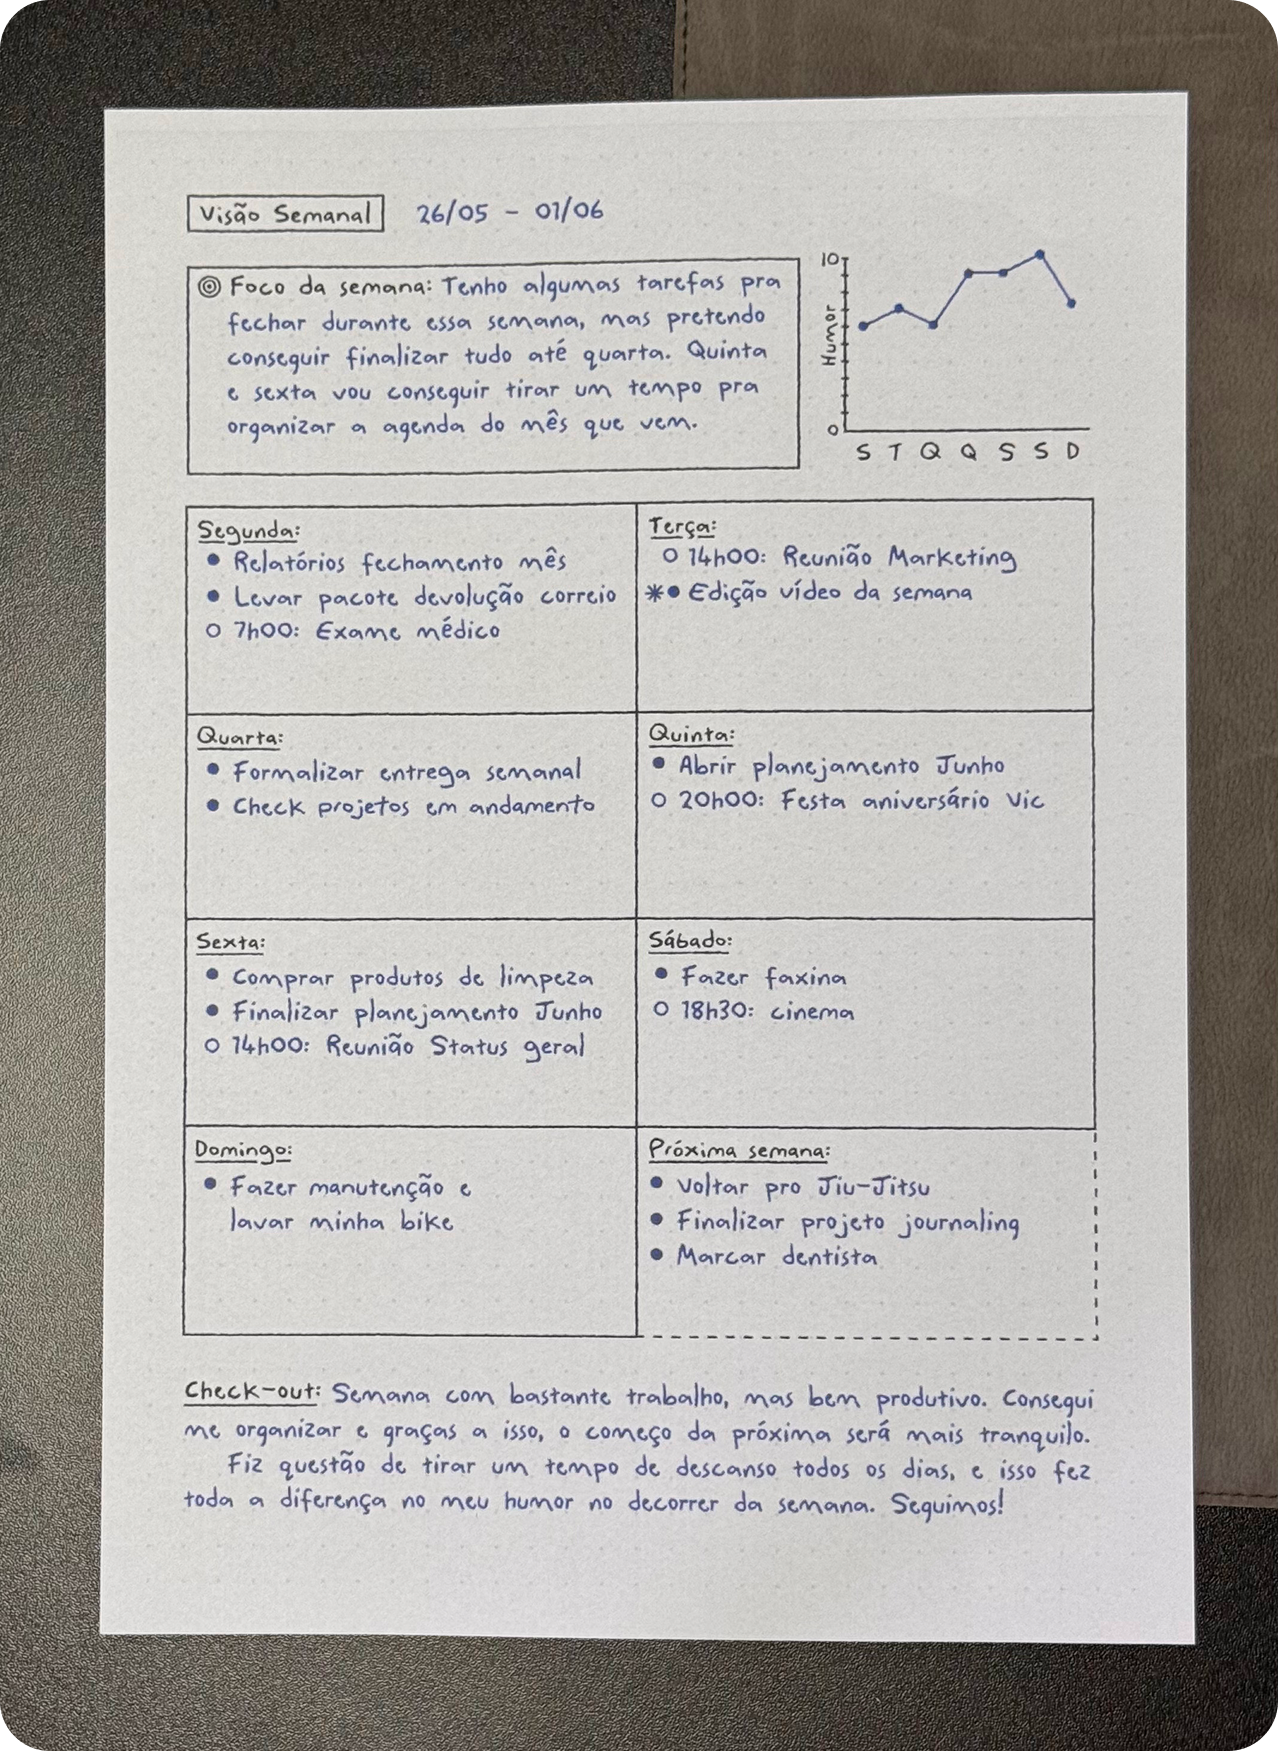 Visão Semanal 26/05 - 01/06
Foco da semana: Tenho algumas tarefas pra
fechar durante essa semana, mas pretendo
conseguir finalizar tudo até quarta. Quinta
e sexta vou conseguir tirar um tempo pra
organizar a agenda do mês que vem.
10
Humor
0
S T Q Q S S D
Segunda:
• Relatórios fechamento mês
• Levar pacote devolução correio
O 7h00: Exame médico
Terça:
O 14h00: Reunião Marketing
*• Edição vídeo da semana
Quarta:
• Formalizar entrega semanal
• Check projetos em andamento
Quinta:
• Abrir planejamento Junho
O 20h00: Festa aniversário Vic
Sexta:
• Comprar produtos de limpeza
• Finalizar planejamento Junho
O 14h00: Reunião Status geral
Sábado:
• Fazer faxina
O 18h30: cinema
Domingo:
• Fazer manutenção e
lavar minha bike
Próxima semana:
• Voltar pro Jiu-Jitsu
• Finalizar projeto journaling
• Marcar dentista
Check-out: Semana com bastante trabalho, mas bem produtivo. Consegui
me organizar e graças a isso, o começo da próxima será mais tranquilo.
Fiz questão de tirar um tempo de descanso todos os dias, e isso fez
toda a diferença no meu humor no decorrer da semana. Seguimos!